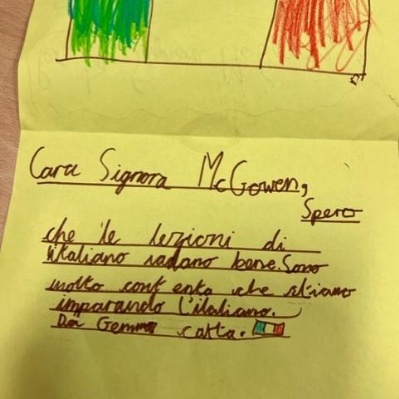 Cara Signora McGowen,
Spero
che le lezioni di
italiano vadano bene. Sono
molto contenta che stiamo
imparando l'italiano.
Da Gemma